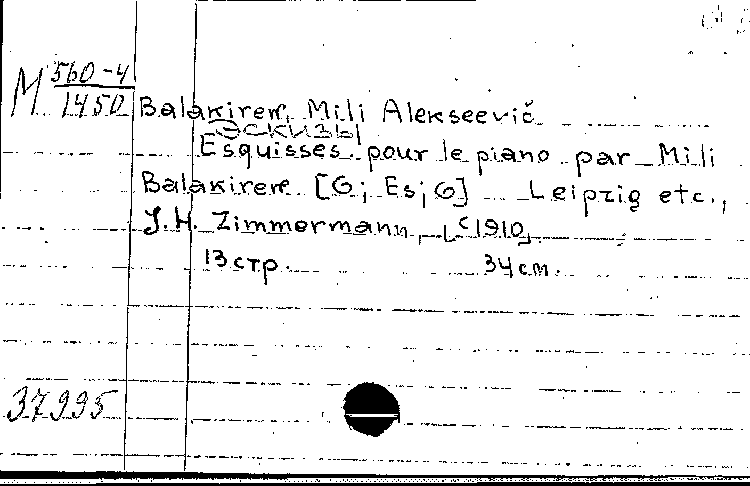 M 560-4
1450
Balakirew, Mili Alekseevič
Эскизы
Esquisses pour le piano par Mili
Balakirew [G; Es; G] Leipzig etc.,
J.H. Zimmermann, [c1910]
13 стр. 34 см.
37995